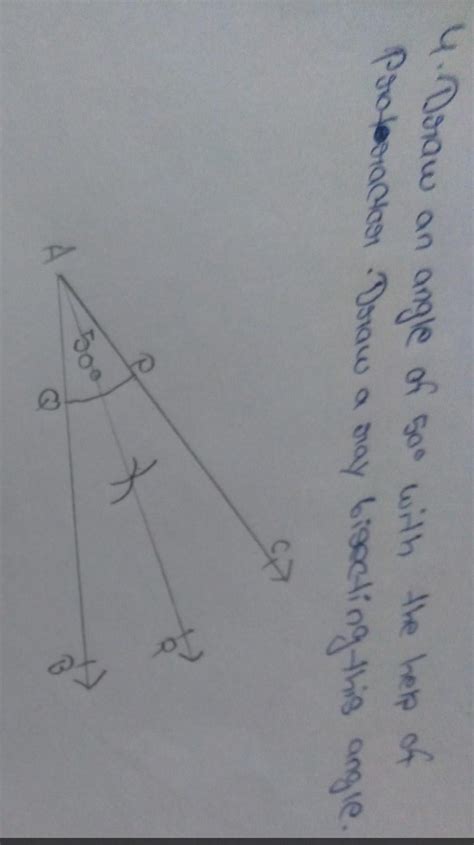 4. Draw an angle of 50° with the help of
Protractor. Draw a ray bisecting this angle.
A
50°
P
Q
C
R
B